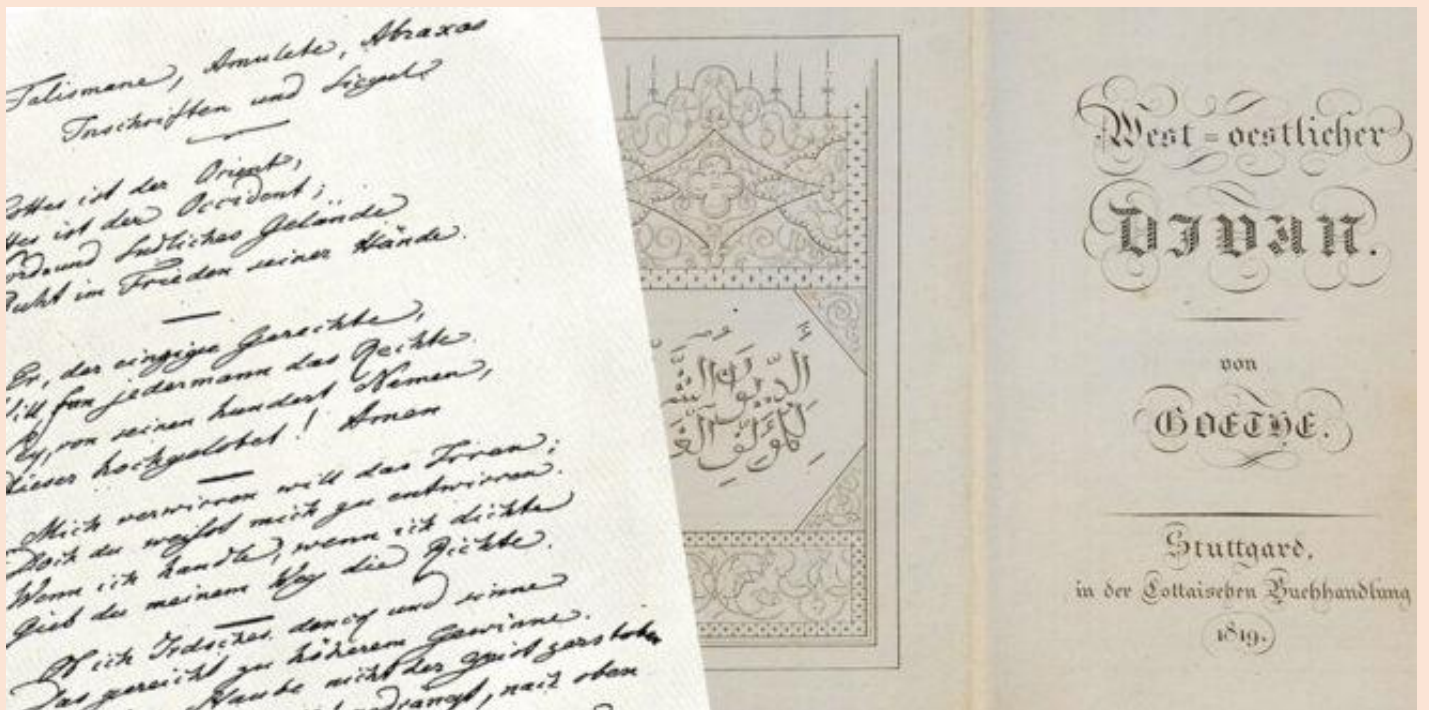 Talismane, Amulete, Abraxas
Inschriften und Siegel.
ottes ist der Orient,
ttes ist der Occident;
ord und Südliches Gelände
Ruht im Frieden seiner Hände.
Er, der einzige Gerechte,
Will für jedermann das Rechte.
Sey, von seinen hundert Namen,
Dieser hochgelobet! Amen
Mich verwirren will das Irren;
Doch du weißt mich zu entwirren.
Wenn ich handle, wenn ich dichte
Gieb du meinem Weg die Richte.
Ob ich Irdsches denck und sinne
Das gereicht zu höherem Gewinne.
Staube nicht der Geist zerstoben
nach oben
أَلدِّيوَانُ
لِلمُؤَلِّفِ
West=oestlicher
DIVAN.
von
GOETHE.
Stuttgard,
in der Cottaischen Buchhandlung
1819.